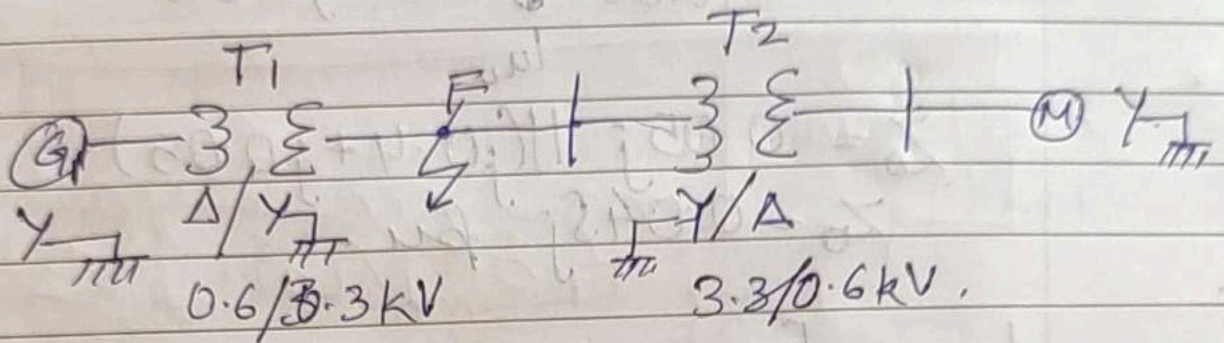 T1 F T2
G M Y
Y Δ/Y Y/Δ
0.6/3.3kV 3.3/0.6kV.